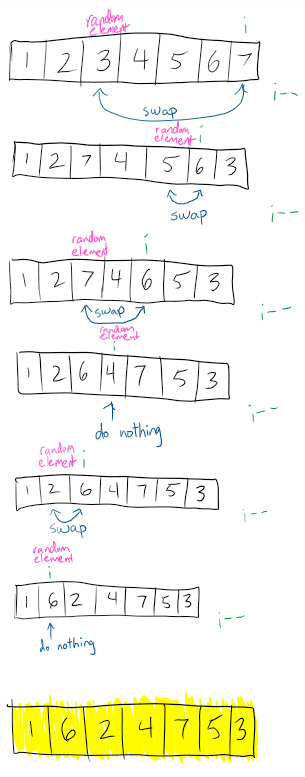 random
element
i
1 2 3 4 5 6 7
swap
i--
random
element
i
1 2 7 4 5 6 3
swap
i--
random
element
i
1 2 7 4 6 5 3
swap
i--
random
element
i
1 2 6 4 7 5 3
do nothing
i--
random
element
i
1 2 6 4 7 5 3
swap
i--
random
element
i
1 6 2 4 7 5 3
do nothing
i--
1 6 2 4 7 5 3